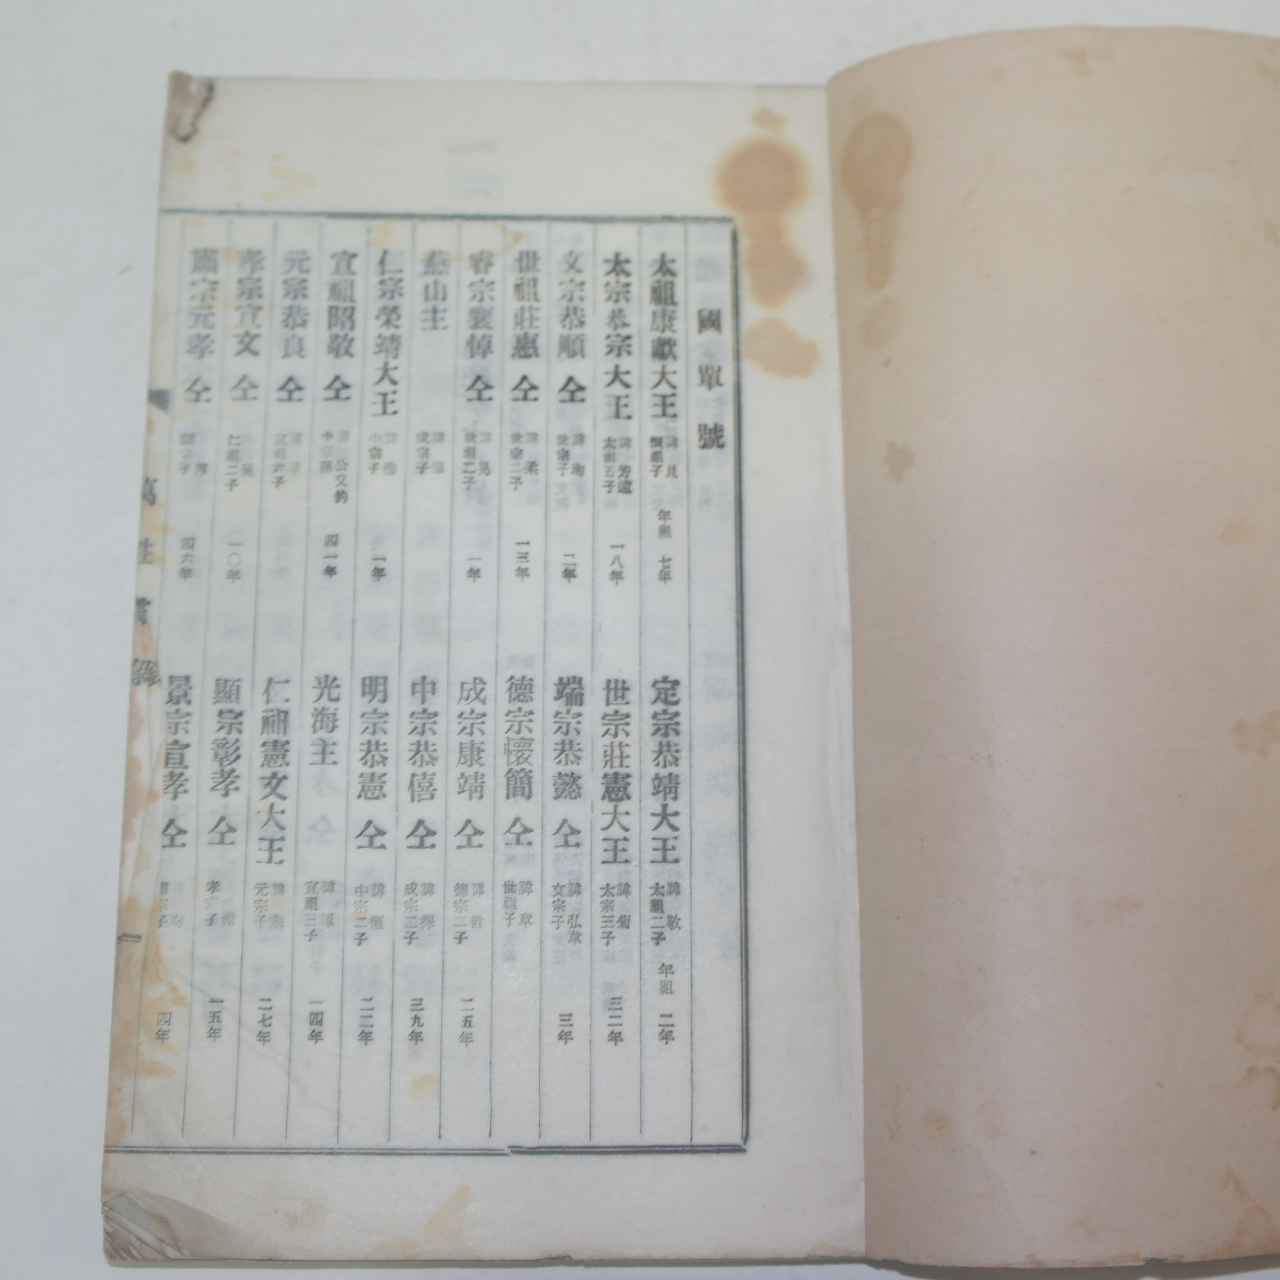 國單號
太祖康獻大王 諱旦 桓祖子 年組 七年
定宗恭靖大王 諱敬 太祖二子 年組 二年
太宗恭宗大王 諱芳遠 太祖五子 一八年
世宗莊憲大王 諱裪 太宗三子 三二年
文宗恭順仝 諱珦 世宗子 二年
端宗恭懿仝 諱弘暐 文宗子 三年
世祖莊惠仝 諱柔 世宗二子 一三年
德宗懷簡仝 諱章 世祖子
睿宗襄悼仝 諱晃 世祖二子 一年
成宗康靖仝 諱 德宗二子 二五年
燕山主 諱 成宗子
中宗恭僖仝 諱懌 成宗二子 三九年
仁宗榮靖大王 諱 中宗子 一年
明宗恭憲仝 諱恒 中宗二子 二二年
宣祖昭敬仝 諱公又鈞 中宗孫 四一年
光海主 諱琿 宣祖三子 一四年
元宗恭良仝 諱 宣祖六子
仁祖憲文大王 諱 元宗子 二七年
孝宗宣文仝 仁祖二子 一〇年
顯宗彰孝仝 孝宗子 一五年
肅宗元孝仝 顯宗子 四六年
景宗宣孝仝 四年
萬姓